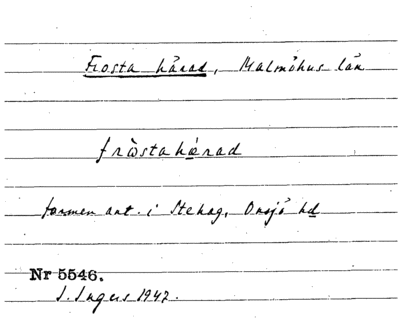 Frosta härad, Malmöhus län
fròstahǽrad
formen ant. i Stehag, Onsjö hd
Nr 5546.
I. Ingers 1947.